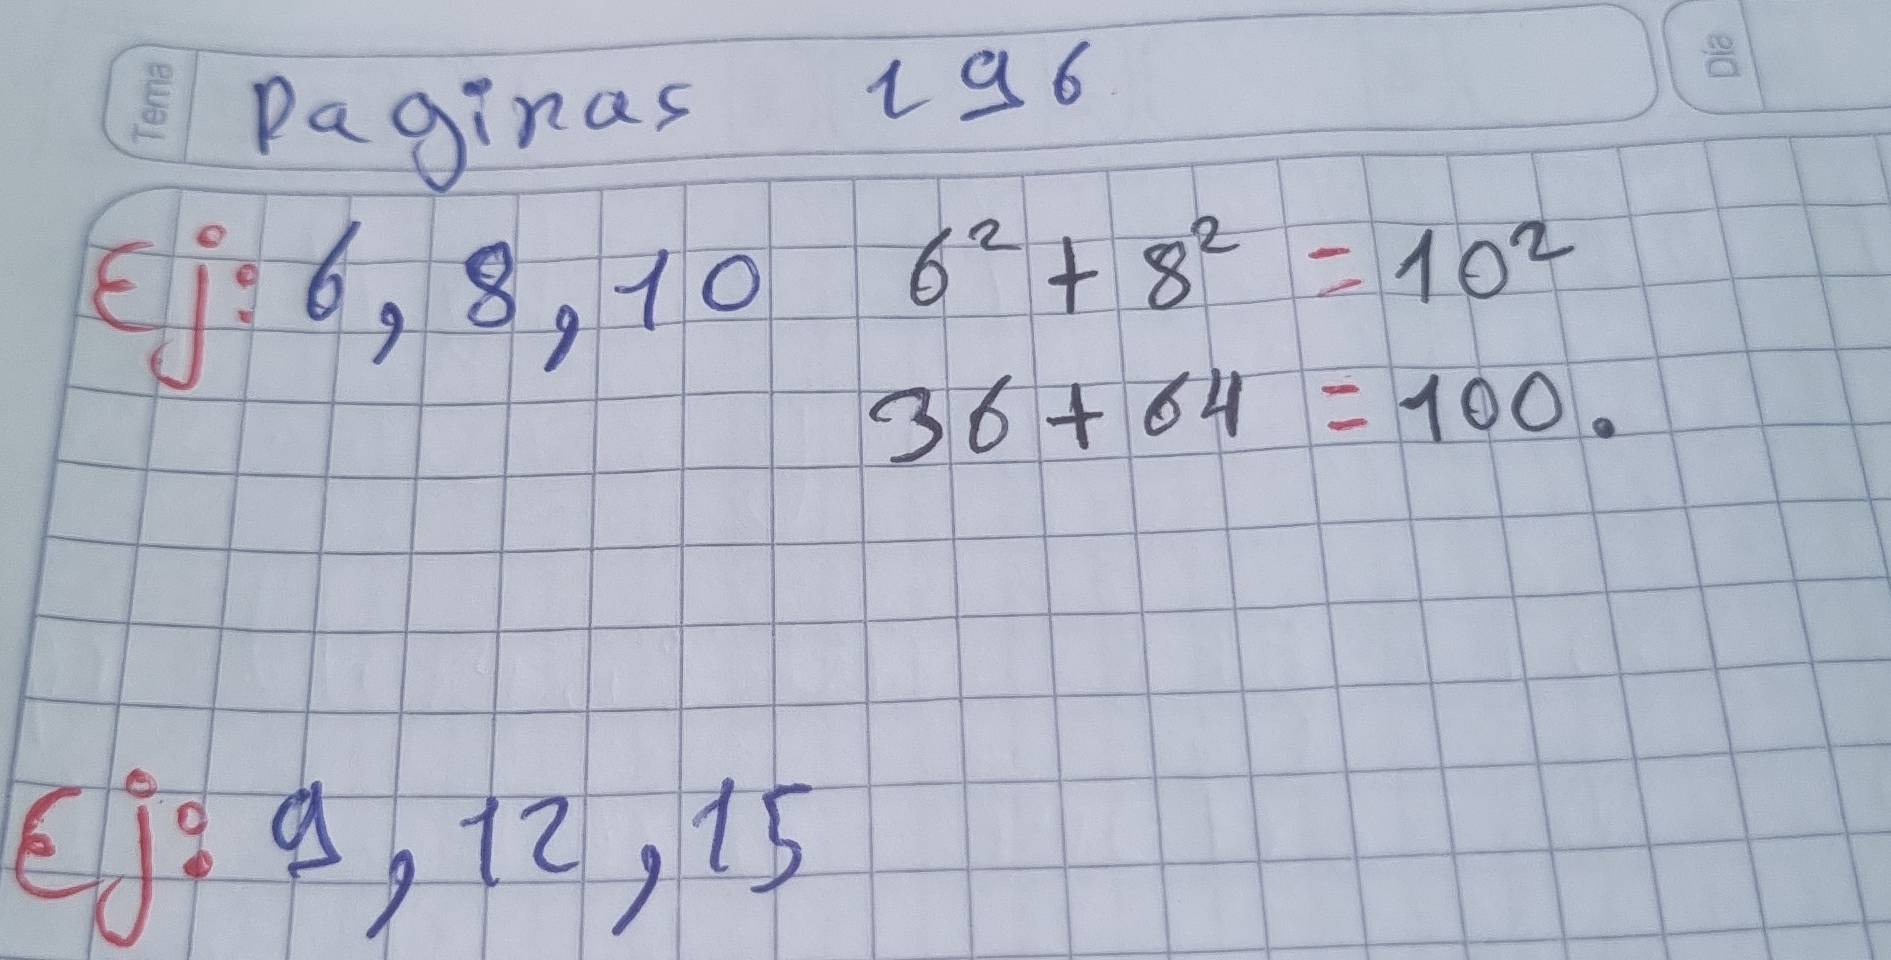 Tema Paginas 196 Día
Ej: 6, 8, 10 6² + 8² = 10²
36 + 64 = 100.
Ej: 9, 12, 15